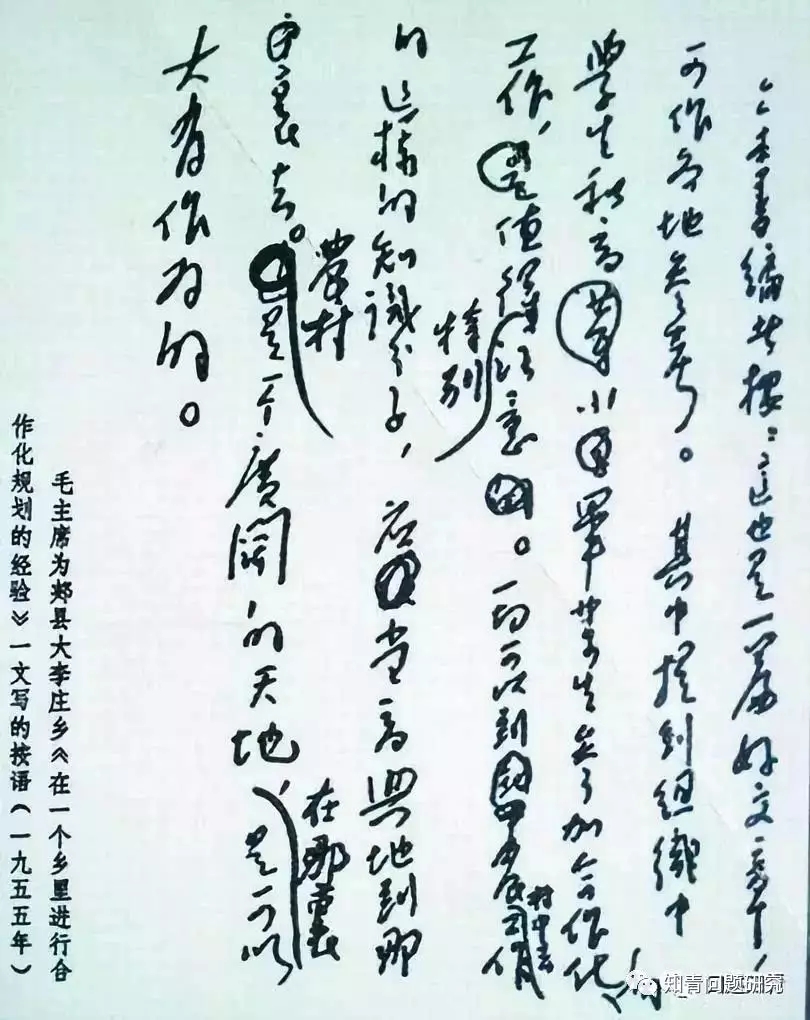 本書編者按：這也是一篇好文章，
可作各地参考。其中提到組織中
學生和高小畢業生参加合作化
的
工作，值得注意。一切可以到
特别
村中去
的這樣的知識分子，应當高興地到那
裏去。是一个廣闊的天地，是可以
農村
在那裏
大有作为的。
毛主席为郏县大李庄乡《在一个乡里进行合
作化规划的经验》一文写的按语（一九五五年）
知青问题研究